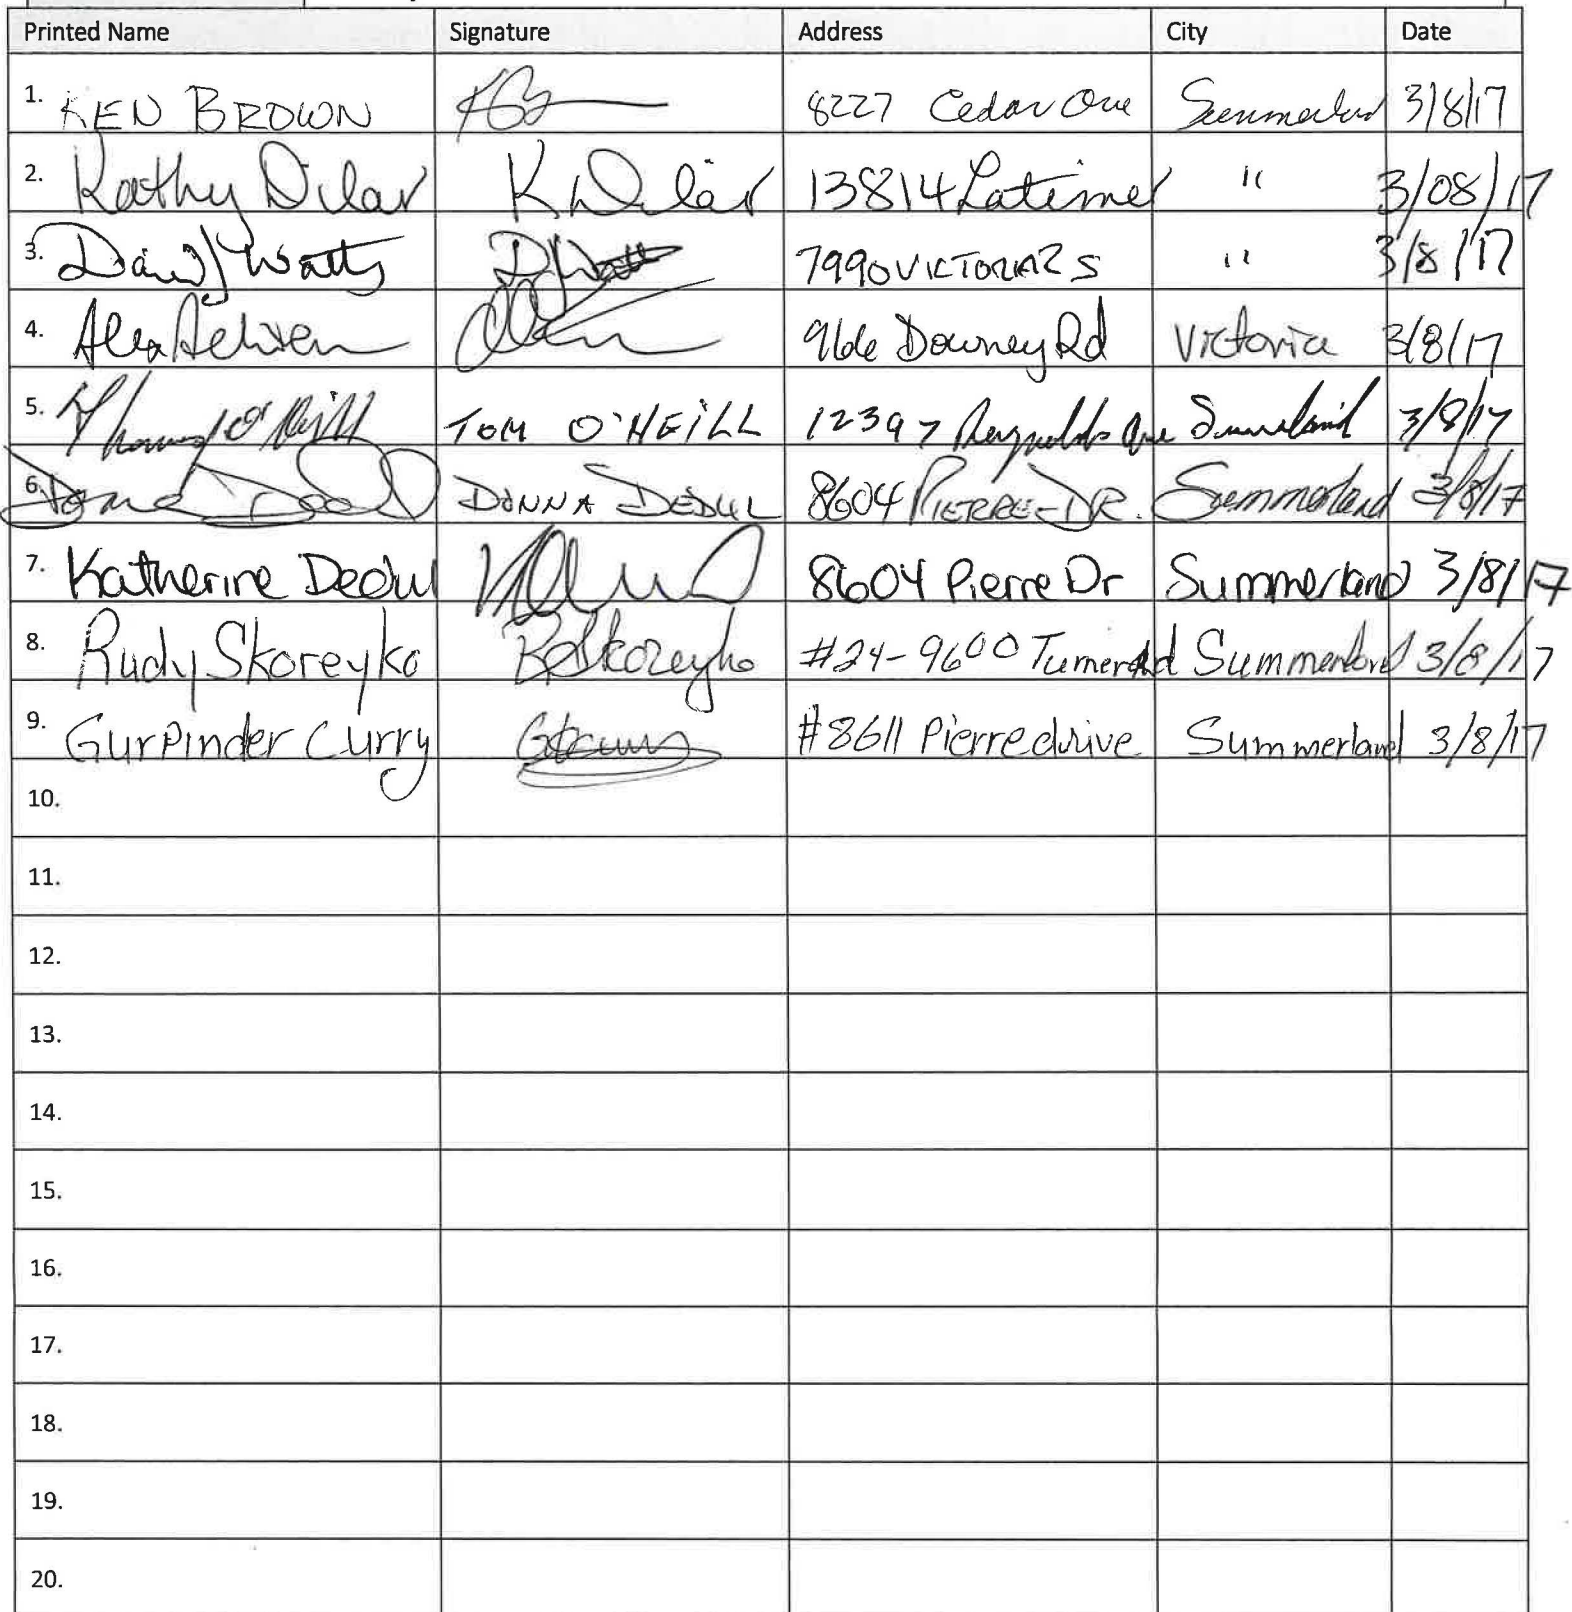 Printed Name Signature Address City Date
1. KEN BROWN 8227 Cedar Ave Summerland 3/8/17
2. Kathy Dilar K Dilar 13814 Latimer " 3/08/17
3. David J Watts D J Watts 7990 VICTORIA R S " 3/8/17
4. Alex 966 Downey Rd Victoria 3/8/17
5. Thomas O'Neill TOM O'NEILL 12397 Reynolds Ave Summerland 3/8/17
6. Donna Dedul DONNA DEDUL 8604 PIERRE DR. Summerland 3/8/17
7. Katherine Dedul 8604 Pierre Dr Summerland 3/8/17
8. Rudy Skoreyko R Skoreyko #24-9600 Turner Rd Summerland 3/8/17
9. Gurpinder Curry #8611 Pierre drive Summerland 3/8/17
10.
11.
12.
13.
14.
15.
16.
17.
18.
19.
20.